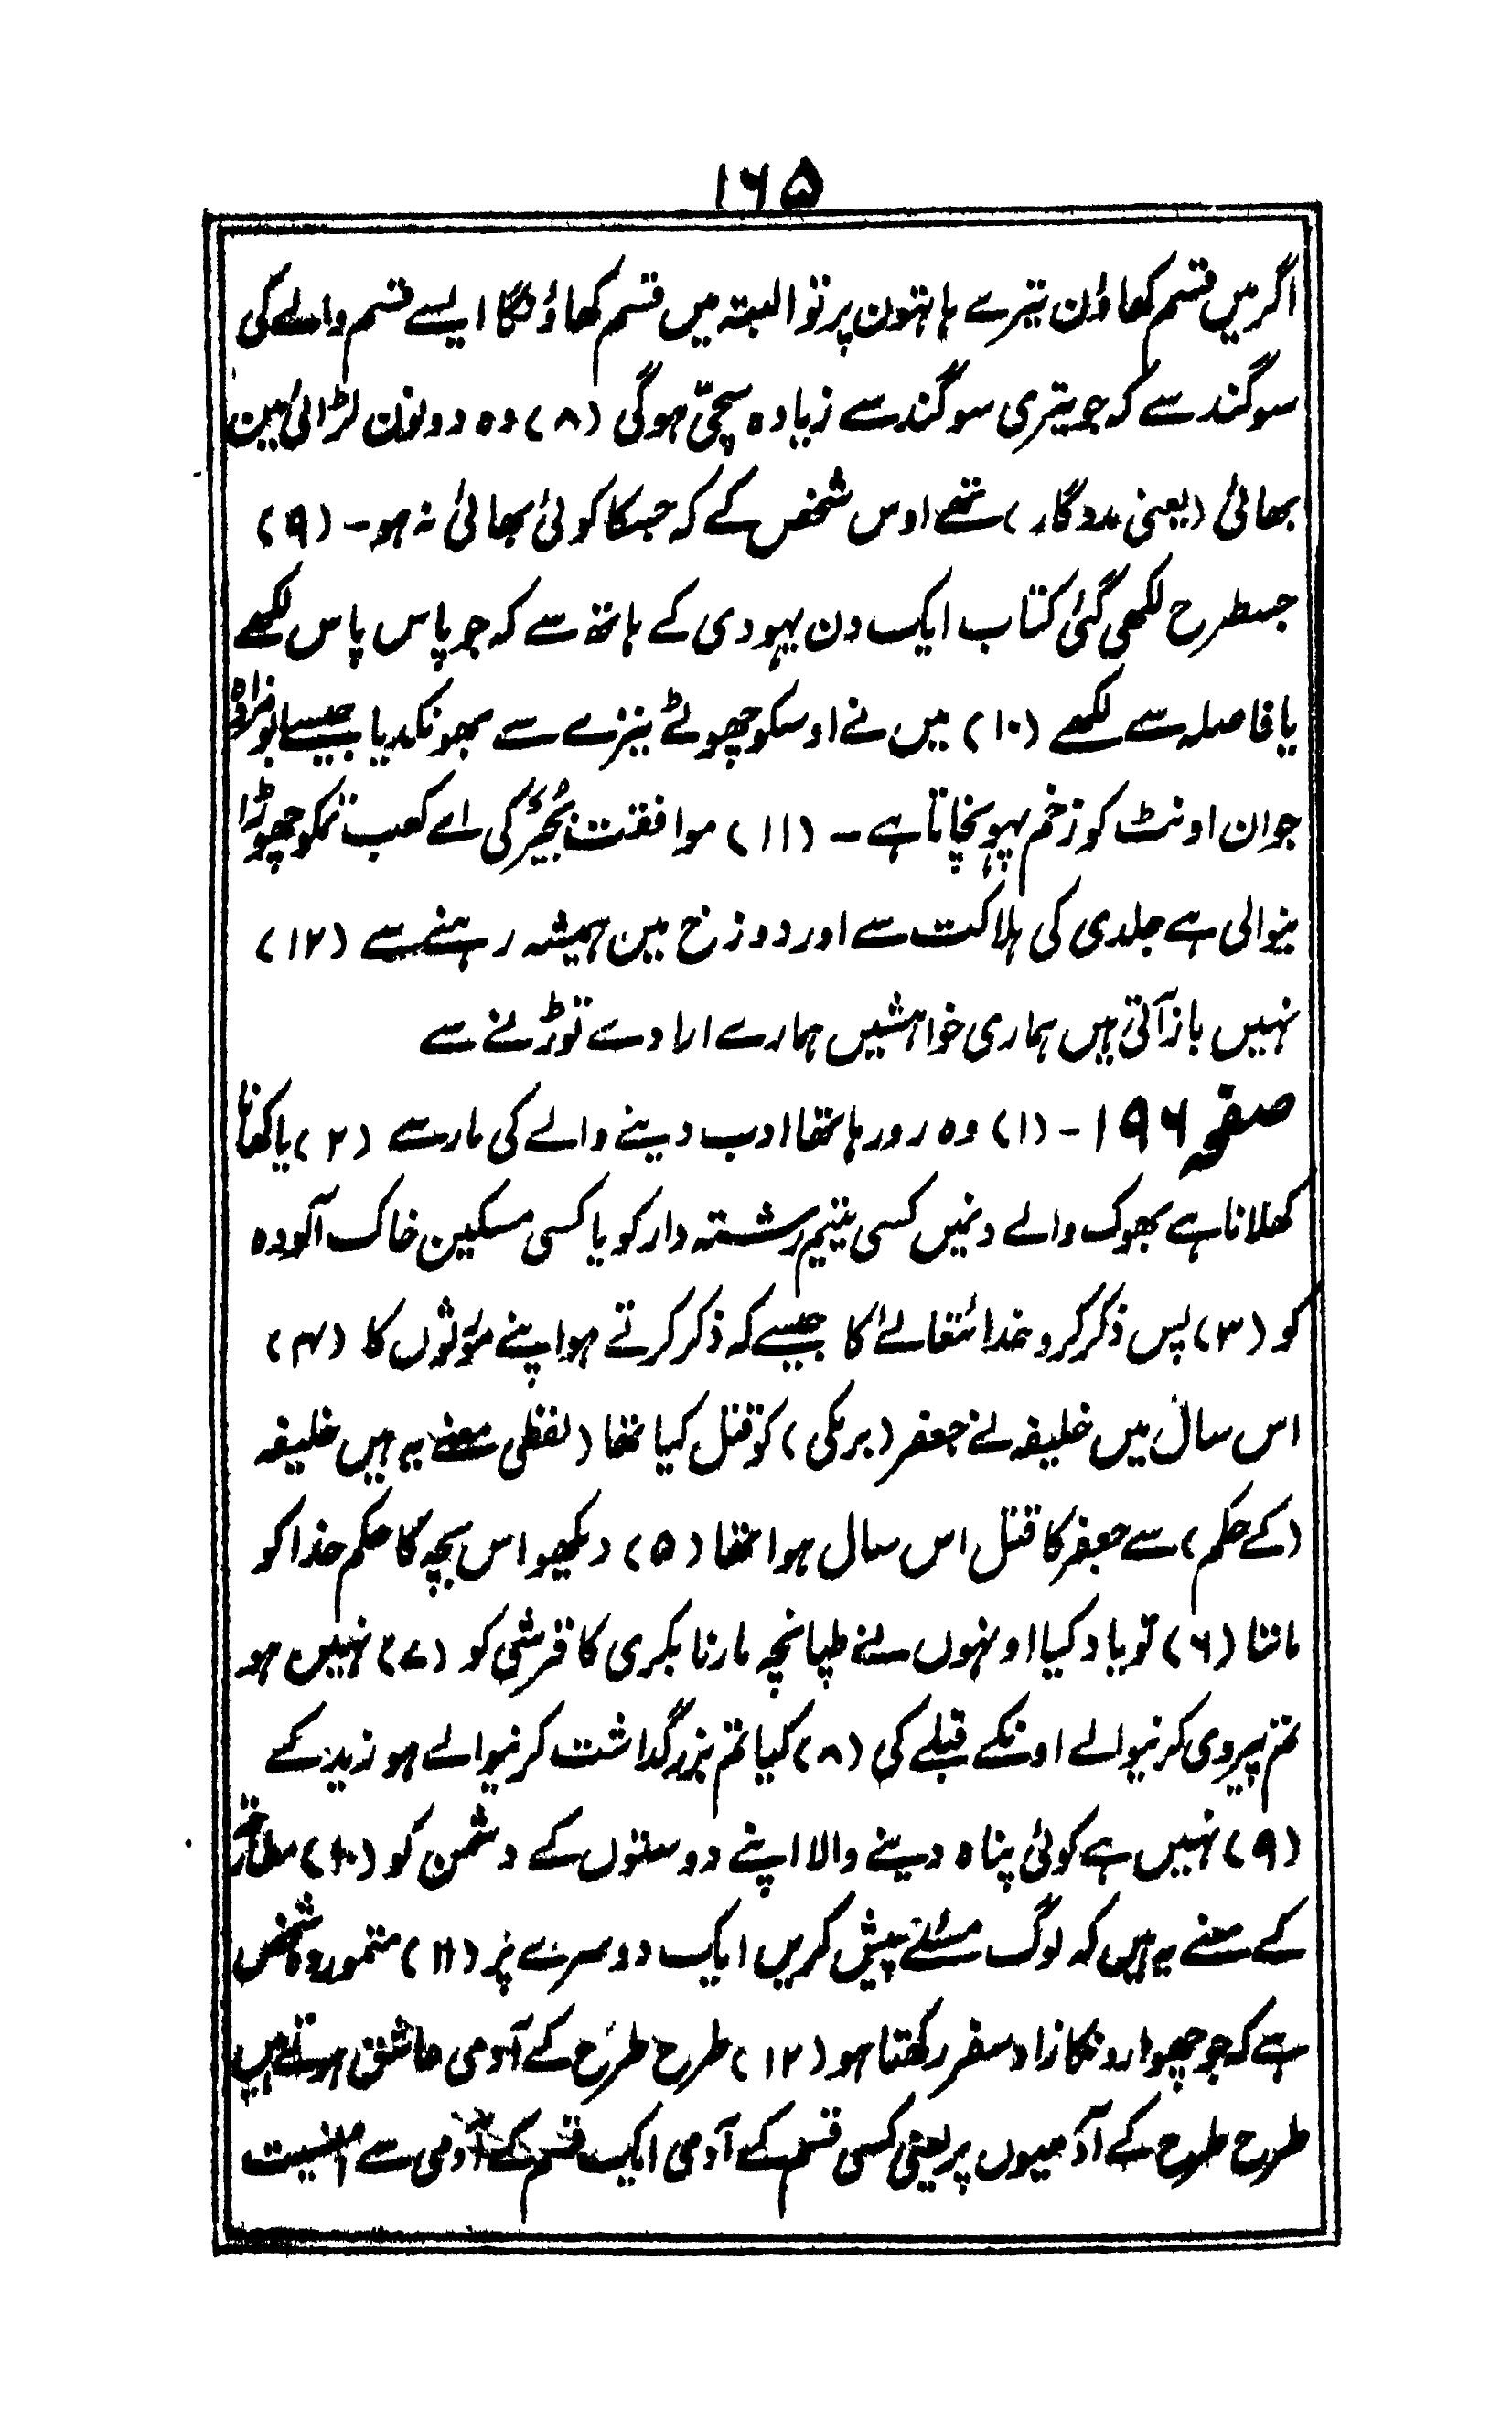 ۱۶۵
اگر میں قسم کھاؤن تیرے ہاتہون پر تو البتہ میں قسم کھاؤنگا ایسے قسم والے کی
سوگند سے کہ جو تیری سوگند سے زیادہ سچّی ہوگی (۸) وہ دونون لڑائی مین
بھائی (یعنی مددگار) تھے اوس شخص کے کہ جسکا کوئی بھائی نہ ہو۔ (۹)
جسطرح لکھی گئی کتاب ایک دن یہودی کے ہاتھ سے کہ جو پاس پاس لکھے
یا فاصلہ سے لکھے (۱۰) میں نے اوسکو چھوٹے نیزے سے بھونکدیا جیسے ابو مزادہ
جوان اونٹ کو زخم پہونچاتا ہے۔ (۱۱) موافقت بُجَیْر کی اے کعب تمکو چھوڑا
نیوالی ہے جلدی کی ہلاکت سے اور دوزخ مین ہمیشہ رہنے سے (۱۲)
نہیں باز آتی ہیں ہماری خواہشیں ہمارے ارادے توڑنے سے
صفحہ ۱۹۶ - (۱) وہ رو رہا تھا ادب دینے والے کی مار سے (۲) یا کھانا
کھلانا ہے بھوک والے دنمیں کسی یتیم رشتہ دار کو یا کسی مسکین خاک آلودہ
کو (۳) پس ذکر کرو خدا ئتعالےٰ کا جیسے کہ ذکر کرتے ہو اپنے مؤثوں کا (۴)
اس سال میں خلیفہ نے جعفر (برمکی) کو قتل کیا تھا (لفظی معنے یہ ہیں خلیفہ
(کے حکم) سے جعفر کا قتل اس سال ہوا تھا (۵) دیکھو اس بچہ کا حکم خدا کو
ماننا (۶) تو یاد کیا اونہوں نے طپانچہ مارنا بکری کا قرشی کو (۷) نہیں ہو
تم پیروی کرنیوالے اونکے قبلے کی (۸) کیا تم بزرگداشت کرنیوالے ہو زید کے
(۹) نہیں ہے کوئی پناہ دینے والا اپنے دوستوں کے دشمن کو (۱۰)
کے معنے یہ ہیں کہ لوگ مسئلے پیش کریں ایک دوسرے پر (۱۱) متمور وہ شخص
ہے کہ جو چھوارونکا زاد سفر رکھتا ہو (۱۲) طرح طرح کے آدمی عاشق ہوتے ہیں
طرح طرح کے آدمیوں پر یعنی کسی قسم کے آدمی ایک قسم کے آدمی سے انسیت